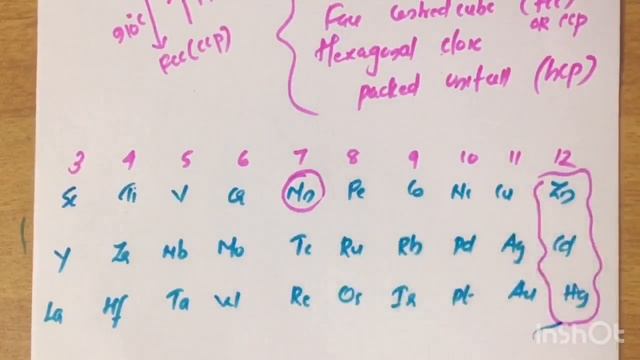 910°C
fcc(ccp)
Face centred cube (fcc)
OR ccp
Hexagonal close
packed unitcell (hcp)
3 4 5 6 7 8 9 10 11 12
Sc Ti V Ca Mn Fe Co Ni Cu Zn
Y Za Nb Mo Tc Ru Rh Pd Ag Cd
La Hf Ta W Re Os Ir Pt Au Hg
InShOt